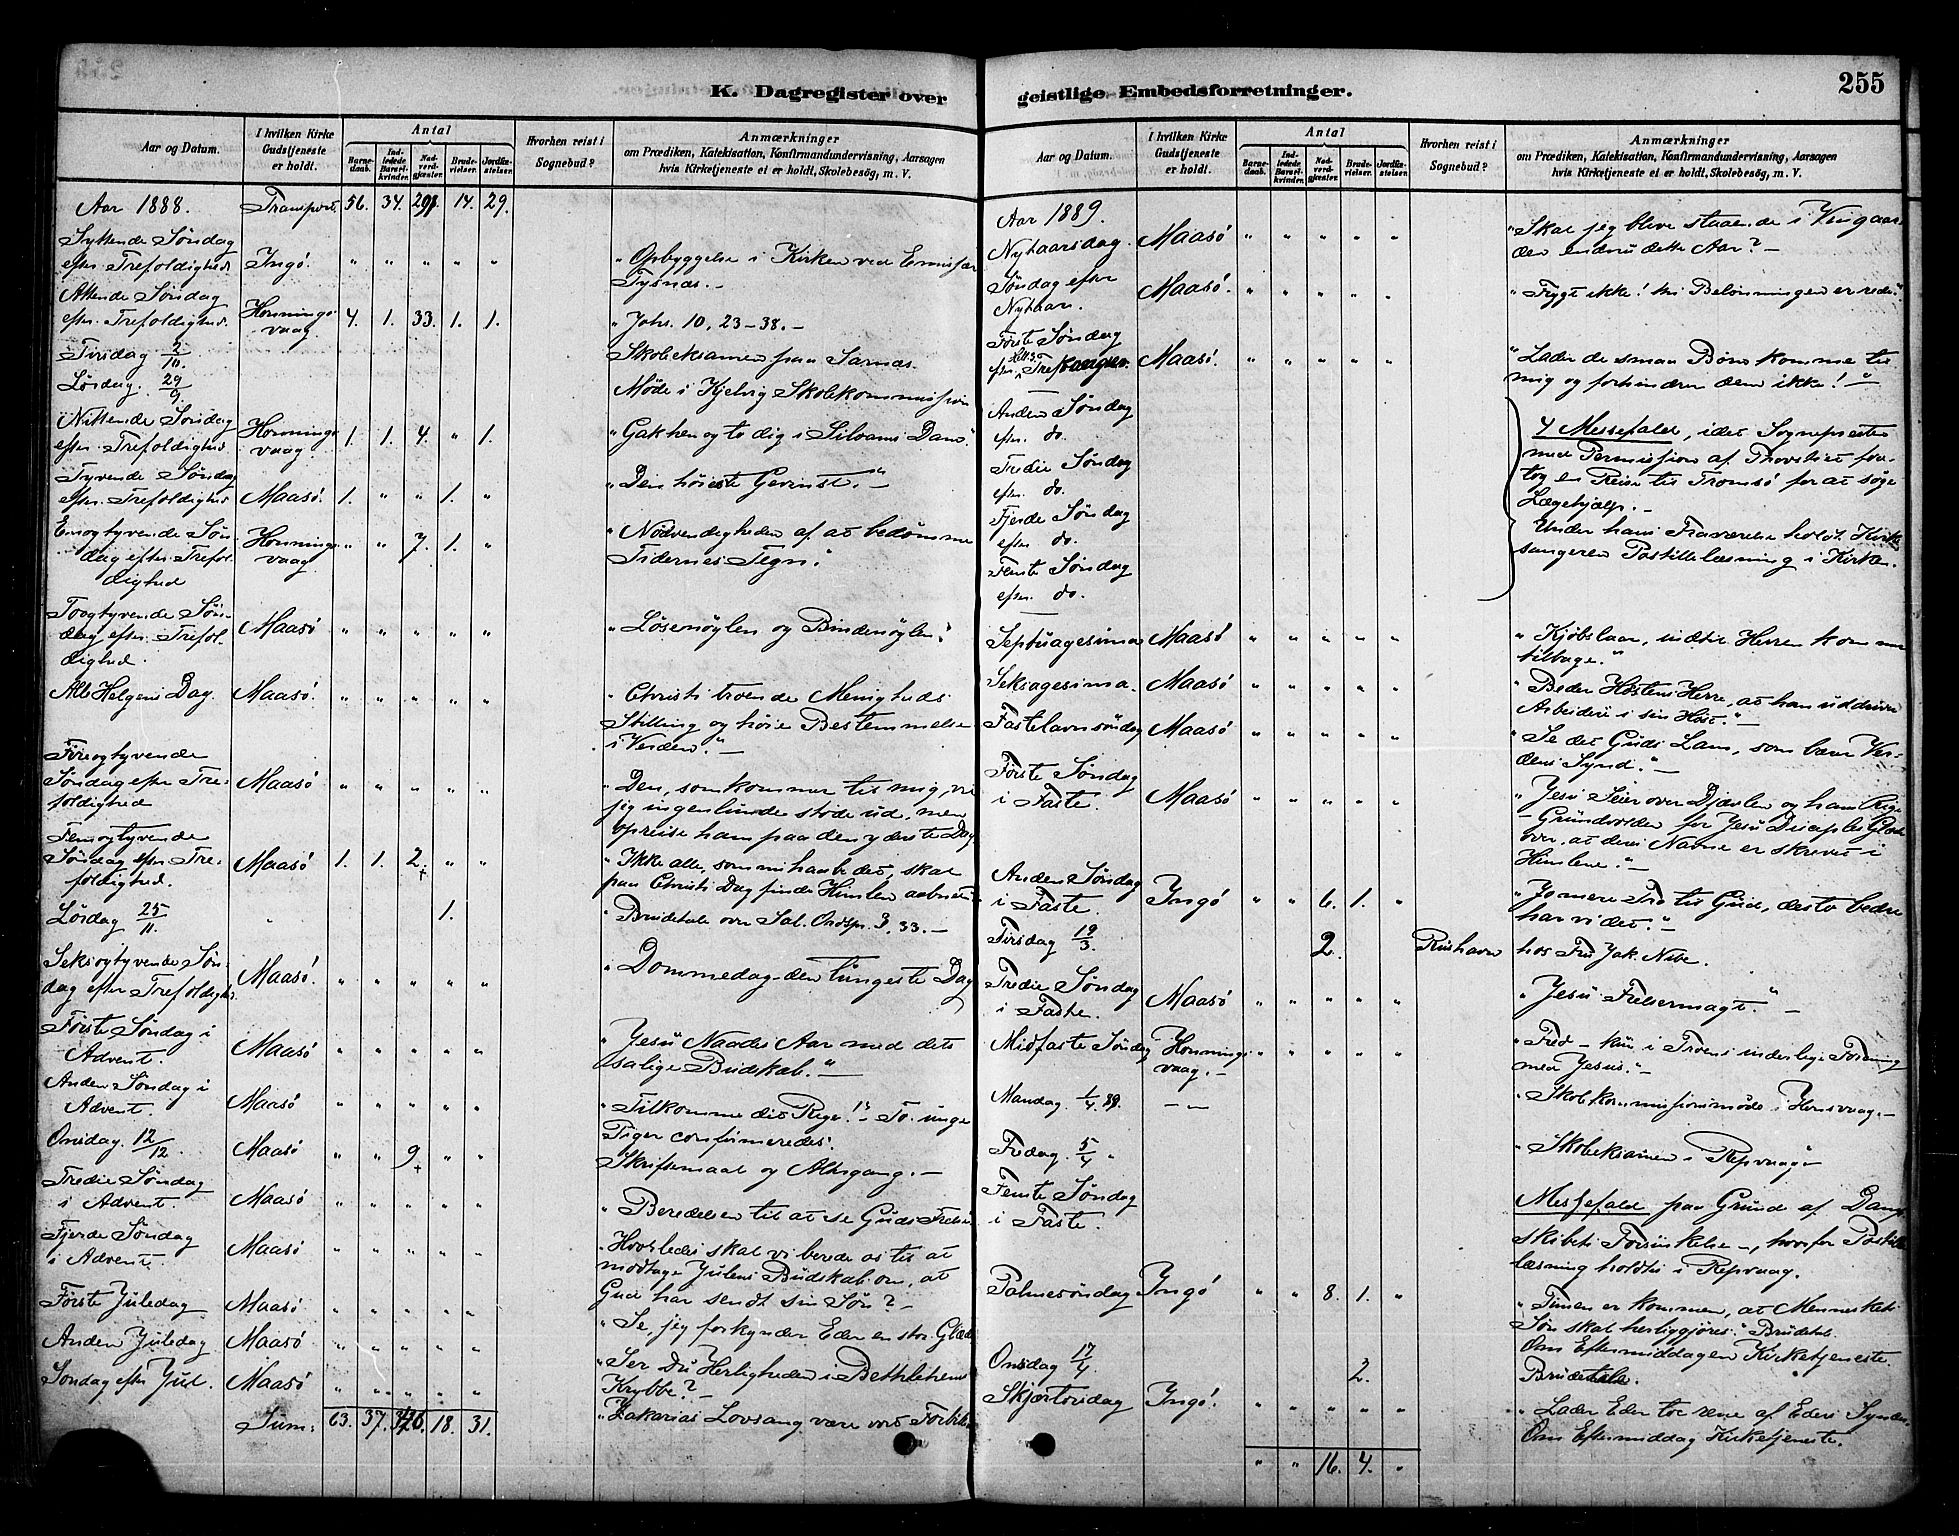 255
K. Dagregister over
geistlige Embedsforretninger.
Aar og Datum.
I hvilken Kirke Gudstjeneste er holdt.
Antal
Barnedaab.
Indledede Barselkvinder.
Nadverdgjæster.
Brudevielser.
Jordfæstelser.
Hvorhen reist i Sognebud?
Anmærkninger
om Prædiken, Katekisation, Konfirmandundervisning, Aarsagen
hvis Kirketjeneste ei er holdt, Skolebesøg, m. V.
Aar 1888. Transport. 56. 34. 14. 29.
Syttende Søndag
efter Trefoldighed Ingö. " " " " " "Opbyggelse i Kirken ved
Tysnæs.-
Attende Søndag
efter Trefoldighed. Honningsvaag 4. 1. 33. 1. 1. "Joh. 10, 23-38.-
Tirsdag 2/10. Skoleeksamen paa Sarnæs.
Lørdag. 29/9. Møde i Kjelvig Skolekommission
Nittende Søndag
efter Trefoldighed Honningsvaag 1. 1. 4. " 1. "Gak hen og to dig i Siloams Dam."
Tyvende Søndag
efter Trefoldighed Maasö. 1. " " 1. " "Den høieste Gevinst."-
Enogtyvende Søndag efter Trefoldighed Honningsvaag " " 7. 1. " "Nødvendigheden af at bedømme
Tidernes Tegn."
Toogtyvende Søndag efter Trefoldighed. Maasö " " " " " "Løsenøglen og Bindenøglen."
Alle Helgens Dag. Maasö. " " " " " "Christi troende Menigheds
Stilling og høie Bestemmelse
i Verden."-
Fireogtyvende
Søndag efter Trefoldighed Maasö " " " " " "Den, som kommer til mig, vil
jeg ingenlunde støde ud, men
opreise ham paa den yderste Dag
Femogtyvende
Søndag efter Trefoldighed. Maasö 1. 1. 2. " " "Ikke alle, som mi haabe det, skal
paa Christi Dag finde Himlen aabnet."
Lørdag 25/11. " 1. "Brudetale over Sal. Ordspr. 3, 33.-
Seksogtyvende Søndag efter Trefoldighed. Maasö. " " " " " "Dommedag - den tungeste Dag
Første Søndag i
Advent. Maasö " " " " " "Jesu Naades Aar med dets
salige Budskab."-
Anden Søndag i
Advent. Maasö " " " " " "Tilkomme dit Rige!"- To unge
Piger confirmeredes.
Onsdag. 12/12 Maasö " " 9 " " Skriftemaal og Altergang.-
Tredie Søndag
i Advent. Maasö " " " " " "Beredelsen til at se Guds Frelse
Fjerde Søndag
i Advent. Maasö " " " " " "Hvorledes skal vi berede os til at
modtage Julens Budskab om, at
Gud har sendt sin Søn?-
Første Juledag Maasö " " " " " "Se, jeg forkynder Eder en stor Glæde
Anden Juledag Maasö " " " " " "Ser Du Herligheden i Bethlehems
Krybbe?-
Søndag efter Jul. Maasö " " " " " "Zakarias Lovsang være vort
Sum: 63. 37. 18. 31.
Aar og Datum.
I hvilken Kirke Gudstjeneste er holdt.
Antal
Barnedaab.
Indledede Barselkvinder.
Nadverdgjæster.
Brudevielser.
Jordfæstelser.
Hvorhen reist i Sognebud?
Anmærkninger
om Prædiken, Katekisation, Konfirmandundervisning, Aarsagen
hvis Kirketjeneste ei er holdt, Skolebesøg, m. V.
Aar 1889.
Nytaarsdag. Maasö " " " " " "Skal jeg blive staaende i Vingaarden endnu dette Aar?-
Søndag efter
Nytaar. Maasö. " " " " " "Frygt ikke! thi Belønningen er rede."
Første Søndag
efter Hell. 3 Konger. Maasö. " " " " " "Lader de smaa Børn komme til
mig og forhindrer dem ikke!"-
Anden Søndag
efter do.
Tredie Søndag
efter do.
Fjerde Søndag
efter do.
Femte Søndag
efter do.
4 Messefald, idet Sognepresten
med Permission af Provstiet foretog en Reise til Tromsö for at søge
Lægehjælp.-
Under hans Fraværelse holdt Kirkesangeren Postillelæsning i Kirken.
Septuagesima Maasö " " " " " "Kjøbslaar, indtil Herren kommer
tilbage."
Seksagesima. Maasö " " " " " "Beder Høstens Herre, at han uddriver
Arbeidere i sin Høst."-
Fastelavnsöndag Maasö " " " " " "Se det Guds Lam, som bærer Verdens Synd."-
Første Søndag
i Faste. Maasö " " " " " "Jesu Seier over Djævlen og hans Rige
- Grundvolden for Jesu Disciples Glæde
over, at deres Navne er skrevet i
Himlene."-
Anden Søndag
i Faste. Ingö " " 6. 1. " "Jo mere Tro til Gud, desto bedre
har vi det."-
Tirsdag 19/3. 2. hos Fru Jak. Nibe.
Tredie Søndag
i Faste. Maasö " " " " " "Jesu Frelsermagt."-
Midfaste Søndag Honningsvaag.- " " " " " "Fred - kun i Troens inderlige Forening
med Jesus."-
Mandag 1/4 89. -"- "Skolekommissionsmøde i Honsvaag.-
Fredag. 5/4 " "Skoleeksamen i Repvaag"
Femte Søndag
i Faste. Messefald paa Grund af Dampskibets Forsinkelse-, hvorfor Postillelæsning holdtes i Repvaag.
Palmesöndag Ingö " " 8. 1. " "Timen er kommen, at Menneskets
Søn skal herliggjøres." Brudetale.
Om Eftermiddagen Kirketjeneste.
Onsdag 17/4. 2. Brudetale.
Skjærtorsdag Ingö. " " " " " "Lader Eder toe rene af Eders Synder.
Om Eftermiddag Kirketjeneste.
" " 16. 4. "